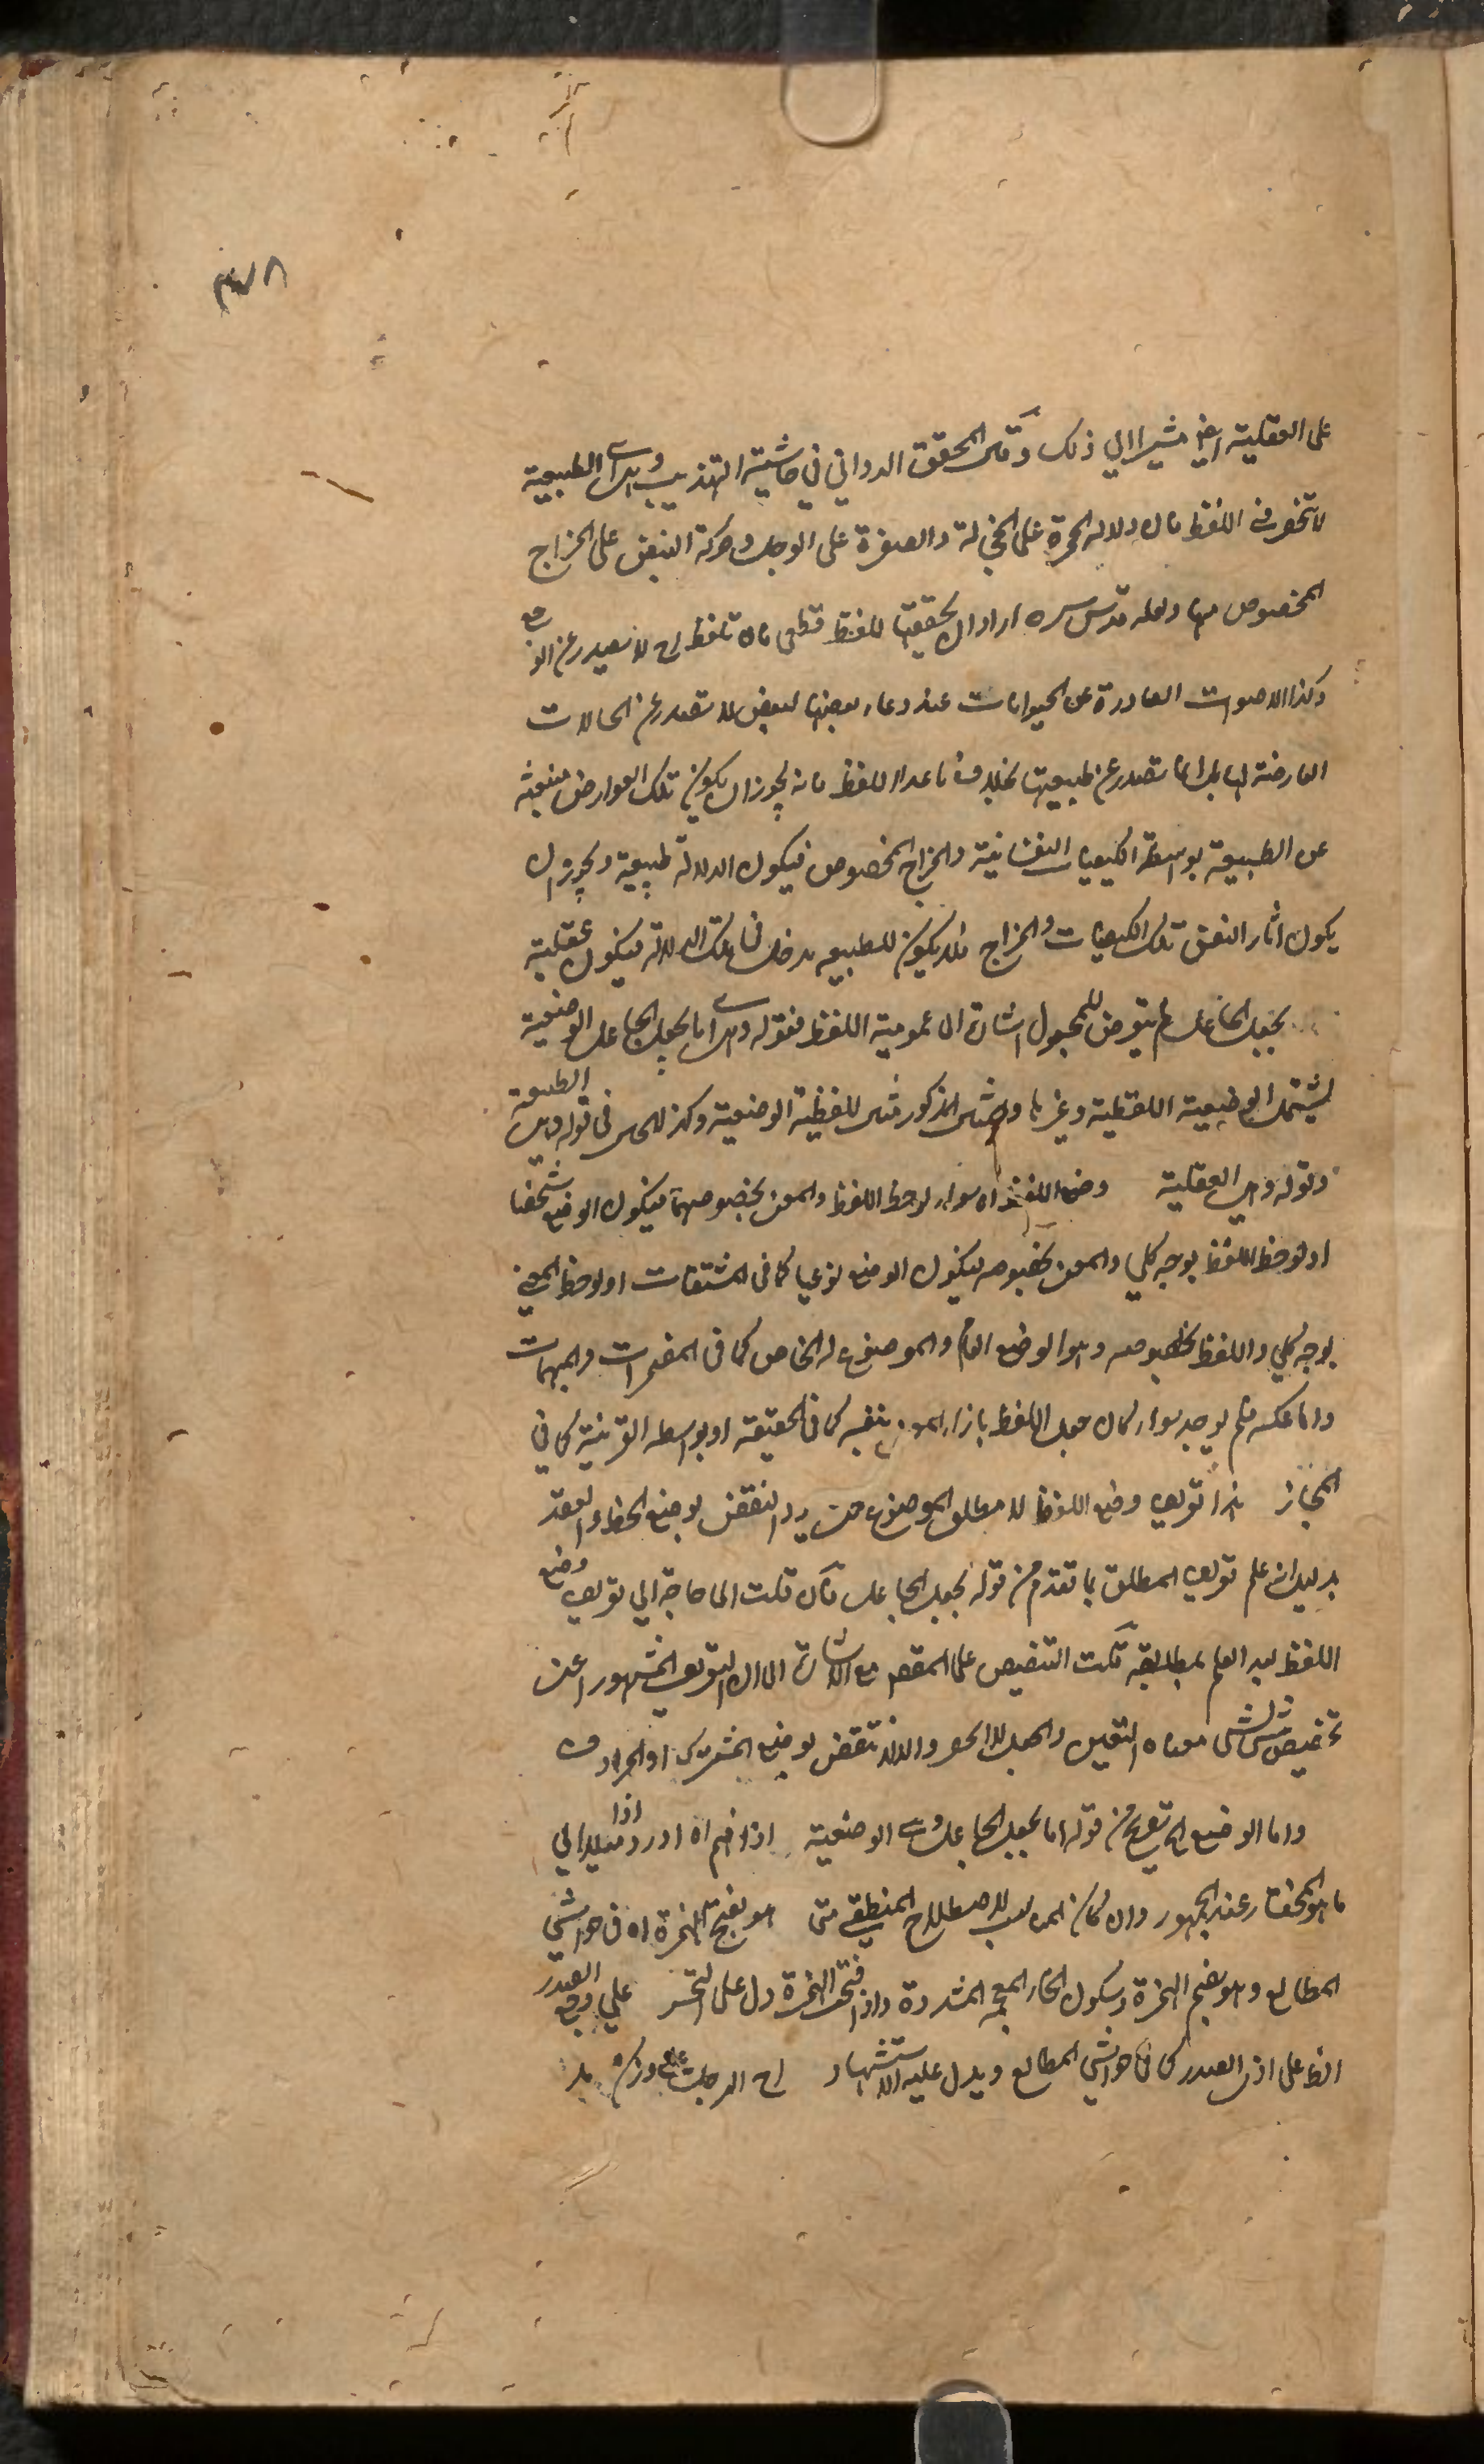 ٣٧٨
على العقلية ايضا مشيرا الى ذلك وقال المحقق الدواني في حاشية التهذيب وهى اى الطبيعية
لا تنحصر في اللفظ فان دلالة الحمرة على الخجالة والصفرة على الوجل وحركة النبض على المزاج
المخصوص منها ولعله قدس سره اراد ان تحققها للفظ قطعى فان تلفظ اح لا يصدر عن الوجع
وكذا الاصوات الصادرة عن الحيوانات عند دعاء بعضها لبعض لا تصدر عن الحالات
العارضة لها بل انما تصدر عن طبيعتها بخلاف ما عدا اللفظ فانه يجوز ان يكون تلك العوارض منبعثة
عن الطبيعة بواسطة الكيفيات النفسانية والمزاج المخصوص فيكون الدلالة طبيعية ويجوز ان
يكون اثار النفس تلك الكيفيات والمزاج فلا يكون للطبيعة مدخل في تلك الدلالة فيكون عقلية
بجعل الجاعل لم يتعرض للمجعول اشارة الى عمومية اللفظ فقوله وهى اما بجعل الجاعل الوضعية
يشتمل الوضعية اللفظية وغيرها والمثال المذكور مثال للفظية الوضعية وكذلك الحال في قوله وهى الطبيعية
وقوله وهى العقلية وضع اللفظ اه سواء لوحظ اللفظ والمعنى بخصوصهما فيكون الوضع شخصيا
او لوحظ اللفظ بوجه كلي والمعنى بخصوصه فيكون الوضع نوعيا كما في المشتقات او لوحظ المعنى
بوجه كلي واللفظ بخصوصه وهو الوضع العام والموضوع له الخاص كما في المضمرات والمبهمات
واما عكسه فلم يوجد سواء كان جعل اللفظ بازاء المعنى بنفسه كما في الحقيقة او بواسطة القرينة كما في
المجاز هذا تعريف وضع اللفظ لا مطلق الموضوع حتى يرد النقض بوضع الخط والعقد
بدليل ان علم تعريف المطلق بما تقدم من قوله بجعل الجاعل فان قلت اى حاجة الى تعريف وضع
اللفظ بعد العلم بمطابقه قلت التنصيص على المقصم مع الاشارة الى ان التعريف المشهور اعنى
تخصيص شئ بشئ معناه التعيين والجعل لا الحصر والا لانتقض بوضع المشترك او المرادف
واما الوضع اى تعريفه من قوله اما بجعل الجاعل وهى الوضعية اذا فهم اه اورد اذا ميلا الى
ما هو المختار عند الجمهور وان كان المناسب للاصطلاح المنطقى متى هو بفتح الهمزة اه في حواشى
المطالع وهو بضم الهمزة وسكون الخاء المعجمة المشددة واذا فتحت الهمزة دل على التحسر على وجع الصدر
ايضا على اذى الصدر كما في حواشى المطالع ويدل عليه الاستشهاد اح الرجل على وزن مد